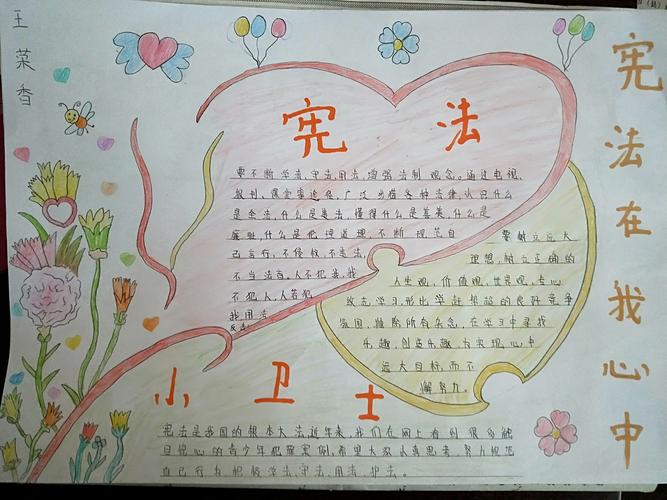 王荣香
宪法在我心中
宪法
要不断学法、守法、用法,增强法制观念。通过电视、
报刊、课堂等途径,广泛步猎各种法律,认识什么
是合法,什么是违法,懂得什么是善美,什么是
什么是伦理道理,不断规范自
己言行,不侵权,不违法,
不当法盲。人不犯我,我
不犯人,人若犯
我用法
要树立远大
理想,树立正确的
人生观,价值观,世界观,专心
致志学习,形比学赶帮超的良好竞争
氛围,摒除所有杂念,在学习中寻找
乐趣,创造乐趣,为实现心中
远大目标,而不
懈努力。
小卫士
宪法是我国的根本大法,近年来,我们在网上看到很多触
目惊心的青少年犯罪案例,希望大家认真思考,努力规范
自己行为,积极学法、守法、用法、护法。